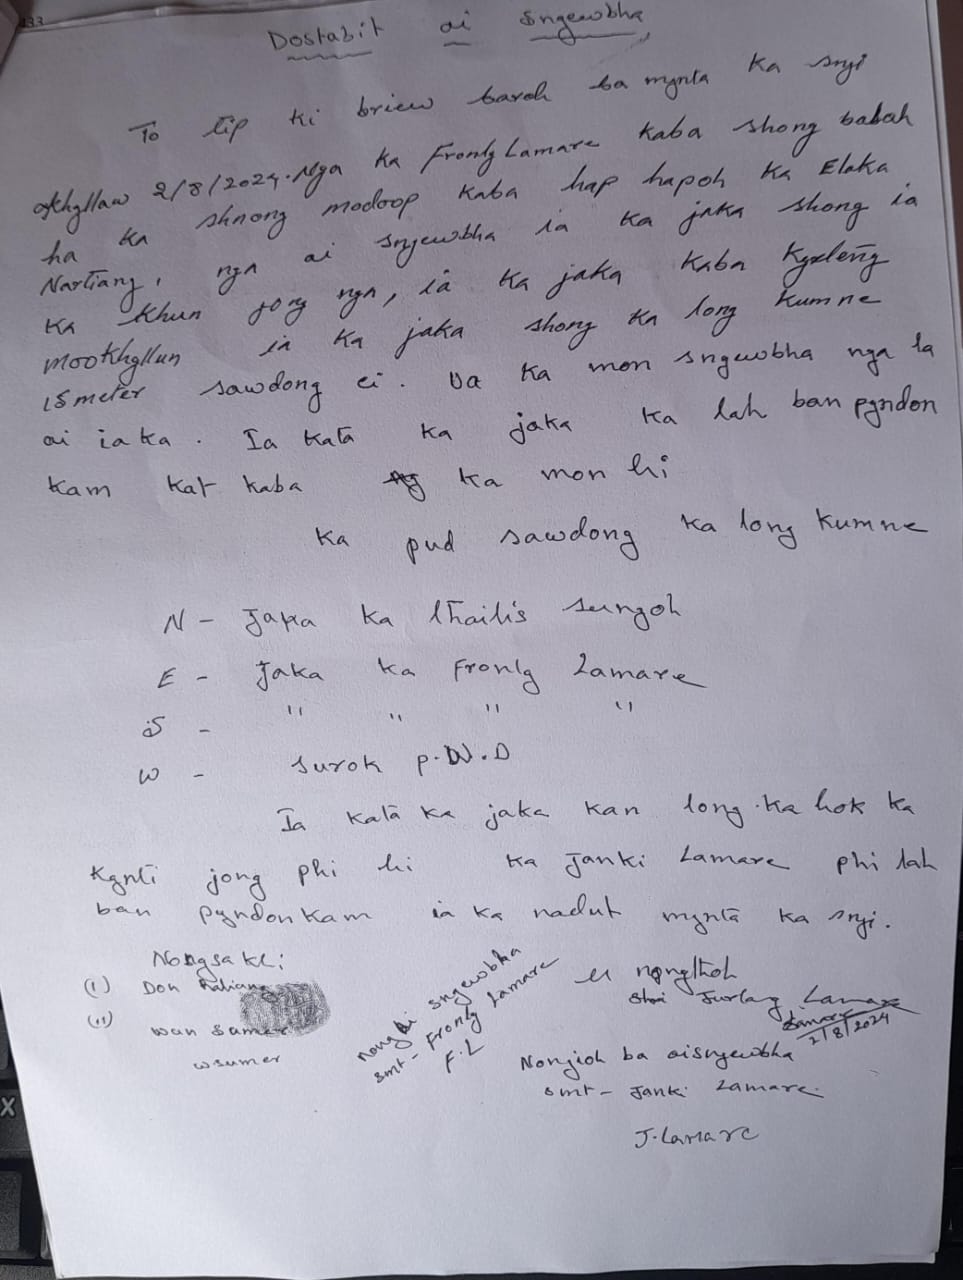 133
Dostabit ai Sngewbha
To tip ki briew baroh ba mynta ka sngi
2/8/2024. Nga ka Fronly Lamare kaba shong babah
ha ka shnong modoop kaba hap hapoh ka Elaka
Nartiang, nga ai sngewbha ia ka jaka shong ia
ka khun jong nga, ia ka jaka kaba kyrteng
mookhyllun ia ka jaka shong ka long kumne
15 meter sawdong ei. Da ka mon sngewbha nga la
ai ia ka. Ia kata ka jaka ka lah ban pyndon
kam kat kaba ka mon hi
ka pud sawdong ka long kumne
N - Jaka ka sungoh
E - Jaka ka Fronly Lamare
S - " " " "
W - surok P.W.D
Ia kata ka jaka kan long ka hok ka
kynti jong phi hi ka Janki Lamare phi lah
ban pyndonkam ia ka nadut mynta ka sngi.
Nongsakhi
(i) Don
(ii) wan sumer
wsumer
nongai sngewbha
smt - Fronly Lamare
F.L
u nongthoh
Shri Lamare
Lamare
2/8/2024
Nongioh ba aisngewbha
smt - Janki Lamare.
J. Lamare
X